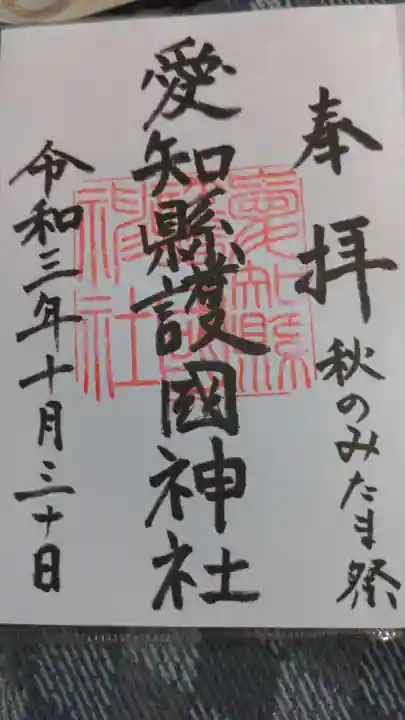 奉拝
秋のみたま祭
愛知縣護國神社
愛知縣
護國
神社
令和三年十月三十日